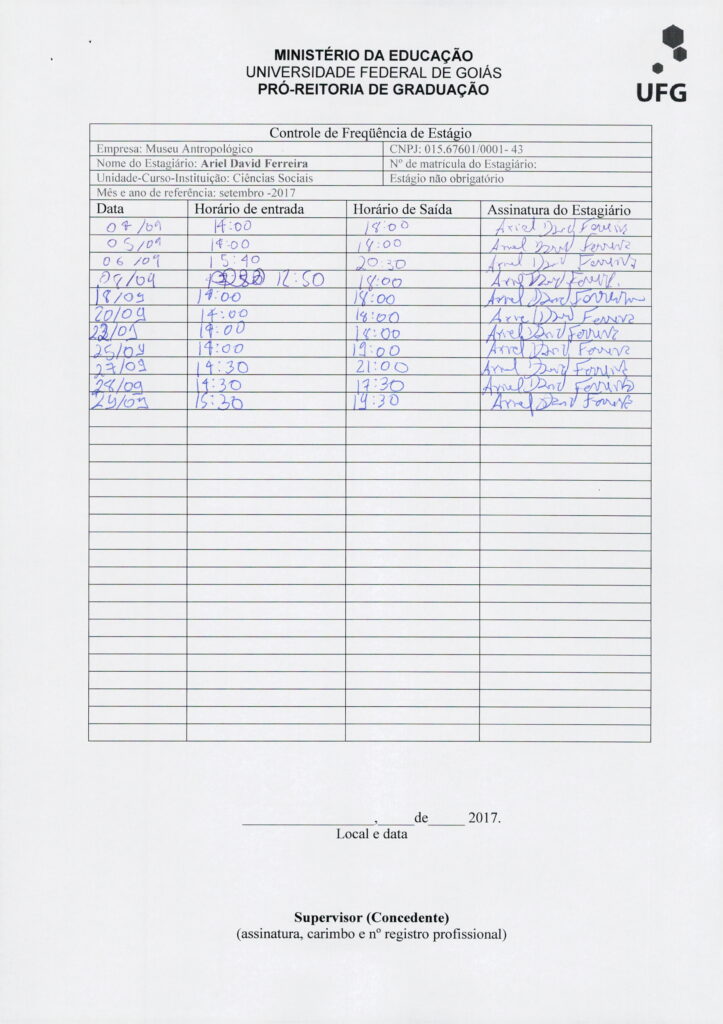 MINISTÉRIO DA EDUCAÇÃO
UNIVERSIDADE FEDERAL DE GOIÁS
PRÓ-REITORIA DE GRADUAÇÃO
UFG
Controle de Freqüência de Estágio
Empresa: Museu Antropológico CNPJ: 015.67601/0001- 43
Nome do Estagiário: Ariel David Ferreira Nº de matricula do Estagiário:
Unidade-Curso-Instituição: Ciências Sociais Estágio não obrigatório
Mês e ano de referência: setembro -2017
Data Horário de entrada Horário de Saída Assinatura do Estagiário
04/09 14:00 18:00 Ariel David Ferreira
05/09 14:00 18:00 Ariel David Ferreira
06/09 15:40 20:30 Ariel David Ferreira
12:50 18:00 Ariel David Ferreira
18/09 14:00 18:00 Ariel David Ferreira
20/09 14:00 18:00 Ariel David Ferreira
22/09 14:00 18:00 Ariel David Ferreira
25/09 14:00 19:00 Ariel David Ferreira
27/09 14:30 21:00 Ariel David Ferreira
28/09 14:30 17:30 Ariel David Ferreira
29/09 15:30 19:30 Ariel David Ferreira
________________,_____de_____ 2017.
Local e data
Supervisor (Concedente)
(assinatura, carimbo e nº registro profissional)